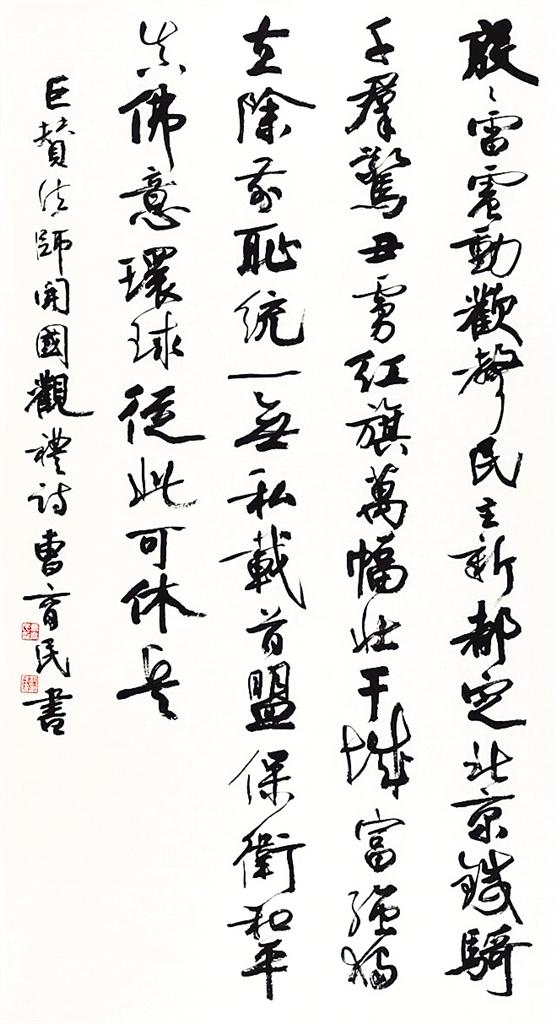 殷〻雷震動歡聲民主新都定北京鐵騎
千羣驚丑虜紅旗萬幅壯干城富強獨
立除前恥統一無私載首盟保衛和平
真佛意環球從此可休兵
巨贊法師開國觀禮詩曹育民書